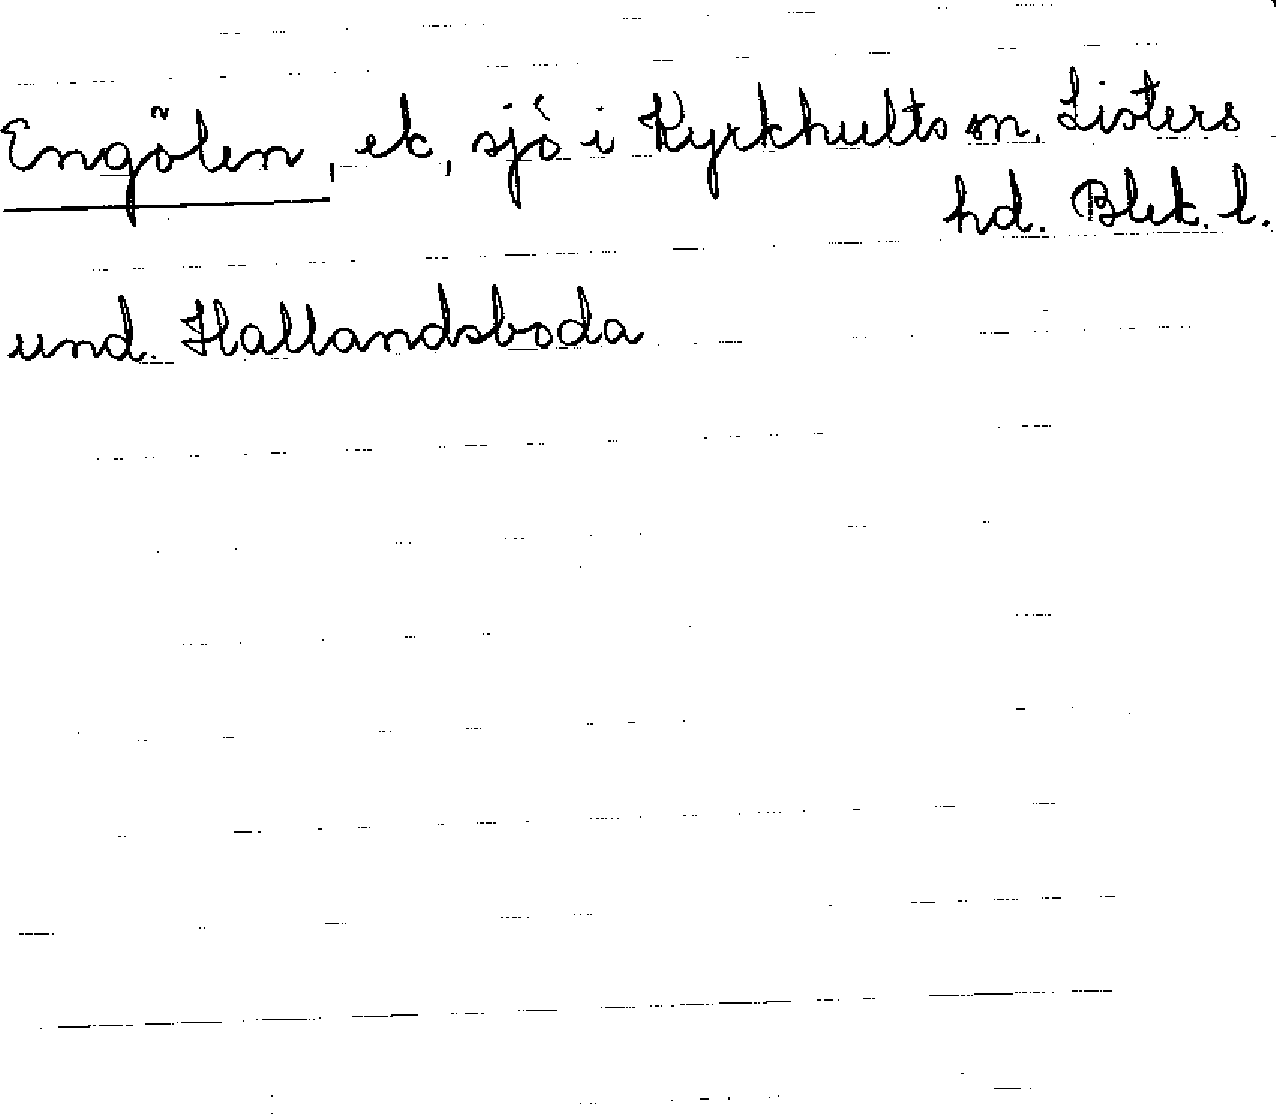 Engölen, ek, sjö i Kyrkhults sn. Listers
hd. Blek. l.
und. Hallandsboda